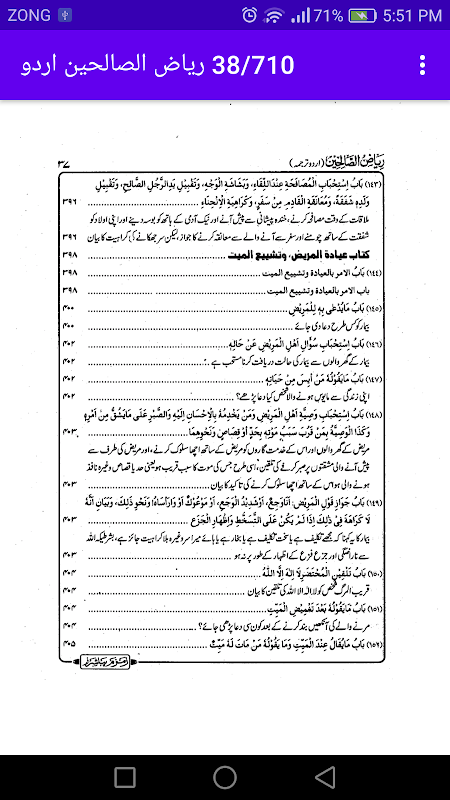 ZONG 71% 5:51 PM
38/710 ریاض الصالحین اردو
ریاض الصالحین (اردو ترجمہ) ۳۷
(۱۴۳) بَابُ اِسْتِحْبَابِ الْمُصَافَحَةِ عِنْدَ اللِّقَاءِ، وَبَشَاشَةِ الْوَجْهِ، وَتَقْبِيْلِ يَدِ الرَّجُلِ الصَّالِحِ، وَتَقْبِيْلِ
وَلَدِهِ شَفَقَةً، وَمُعَانَقَةِ الْقَادِمِ مِنْ سَفَرٍ، وَكَرَاهِيَةِ الْاِنْحِنَاءِ ۳۹۶
ملاقات کے وقت مصافحہ کرنے، خندہ پیشانی سے پیش آنے اور نیک آدمی کے ہاتھ کو بوسہ دینے اور اپنی اولاد کو
شفقت کے ساتھ چومنے اور سفر سے آنے والے سے معانقہ کرنے کا جواز، لیکن سر جھکانے کی کراہیت کا بیان ۳۹۶
كتاب عيادة المريض، وتشييع الميت ۳۹۸
(۱۴۴) بَابُ الامر بالعيادة وتشييع الميت ۳۹۸
باب الامر بالعيادة وتشييع الميت ۳۹۸
(۱۴۵) بَابُ مَايُدْعٰى بِهِ لِلْمَرِيْضِ ۴۰۰
بیمار کو کس طرح دعا دی جائے ۴۰۰
(۱۴۶) بَابُ اِسْتِحْبَابِ سُؤَالِ اَهْلِ الْمَرِيْضِ عَنْ حَالِهِ ۴۰۲
بیمار کے گھر والوں سے بیمار کی حالت دریافت کرنا مستحب ہے ۴۰۲
(۱۴۷) بَابُ مَايَقُوْلُهُ مَنْ اَيِسَ مِنْ حَيَاتِهِ ۴۰۲
اپنی زندگی سے مایوس ہونے والا شخص کیا دعا پڑھے؟ ۴۰۲
(۱۴۸) بَابُ اِسْتِحْبَابِ وَصِيَّةِ اَهْلِ الْمَرِيْضِ وَمَنْ يَخْدِمُهُ بِالْاِحْسَانِ اِلَيْهِ وَالصَّبْرِ عَلٰى مَايَشُقُّ مِنْ اَمْرِهِ
وَكَذَا الْوَصِيَّةُ بِمَنْ قَرُبَ سَبَبُ مَوْتِهِ بِحَدٍّ اَوْ قِصَاصٍ وَنَحْوِهِمَا ۴۰۳
مریض کے گھر والوں اور اس کے خدمت گاروں کو مریض کے ساتھ اچھا سلوک کرنے، اور مریض کی طرف سے
پیش آنے والی مشقتوں پر صبر کرنے کی تلقین، اسی طرح جس کی موت کا سبب قریب ہو یعنی حد یا قصاص وغیرہ نافذ
ہونے والی ہو اس کے ساتھ اچھا سلوک کرنے کی تاکید کا بیان ۴۰۳
(۱۴۹) بَابُ جَوَازِ قَوْلِ الْمَرِيْضِ: اَنَا وَجِعٌ، اَوْ شَدِيْدُ الْوَجَعِ، اَوْ مَوْعُوْكٌ اَوْ وَارَاْسَاهُ وَنَحْوِ ذٰلِكَ، وَبَيَانِ اَنَّهُ
لَا كَرَاهَةَ فِيْ ذٰلِكَ اِذَا لَمْ يَكُنْ عَلَى التَّسَخُّطِ وَاِظْهَارِ الْجَزَعِ ۴۰۳
بیمار کا یہ کہنا کہ مجھے تکلیف ہے یا سخت تکلیف ہے یا بخار ہے یا ہائے میرا سر وغیرہ بلا کراہیت جائز ہے، بشرطیکہ اللہ
سے ناراضگی اور جزع فزع کے اظہار کے طور پر نہ ہو ۴۰۳
(۱۵۰) بَابُ تَلْقِيْنِ الْمُحْتَضَرِ لَا اِلٰهَ اِلَّا اللّٰهُ ۴۰۴
قریب المرگ شخص کو لا الہ الا اللہ کی تلقین کا بیان ۴۰۴
(۱۵۱) بَابُ مَايَقُوْلُهُ بَعْدَ تَغْمِيْضِ الْمَيِّتِ ۴۰۴
مرنے والے کی آنکھیں بند کرنے کے بعد کون سی دعا پڑھی جائے؟ ۴۰۴
(۱۵۲) بَابُ مَايُقَالُ عِنْدَ الْمَيِّتِ وَمَا يَقُوْلُهُ مَنْ مَاتَ لَهُ مَيِّتٌ ۴۰۵